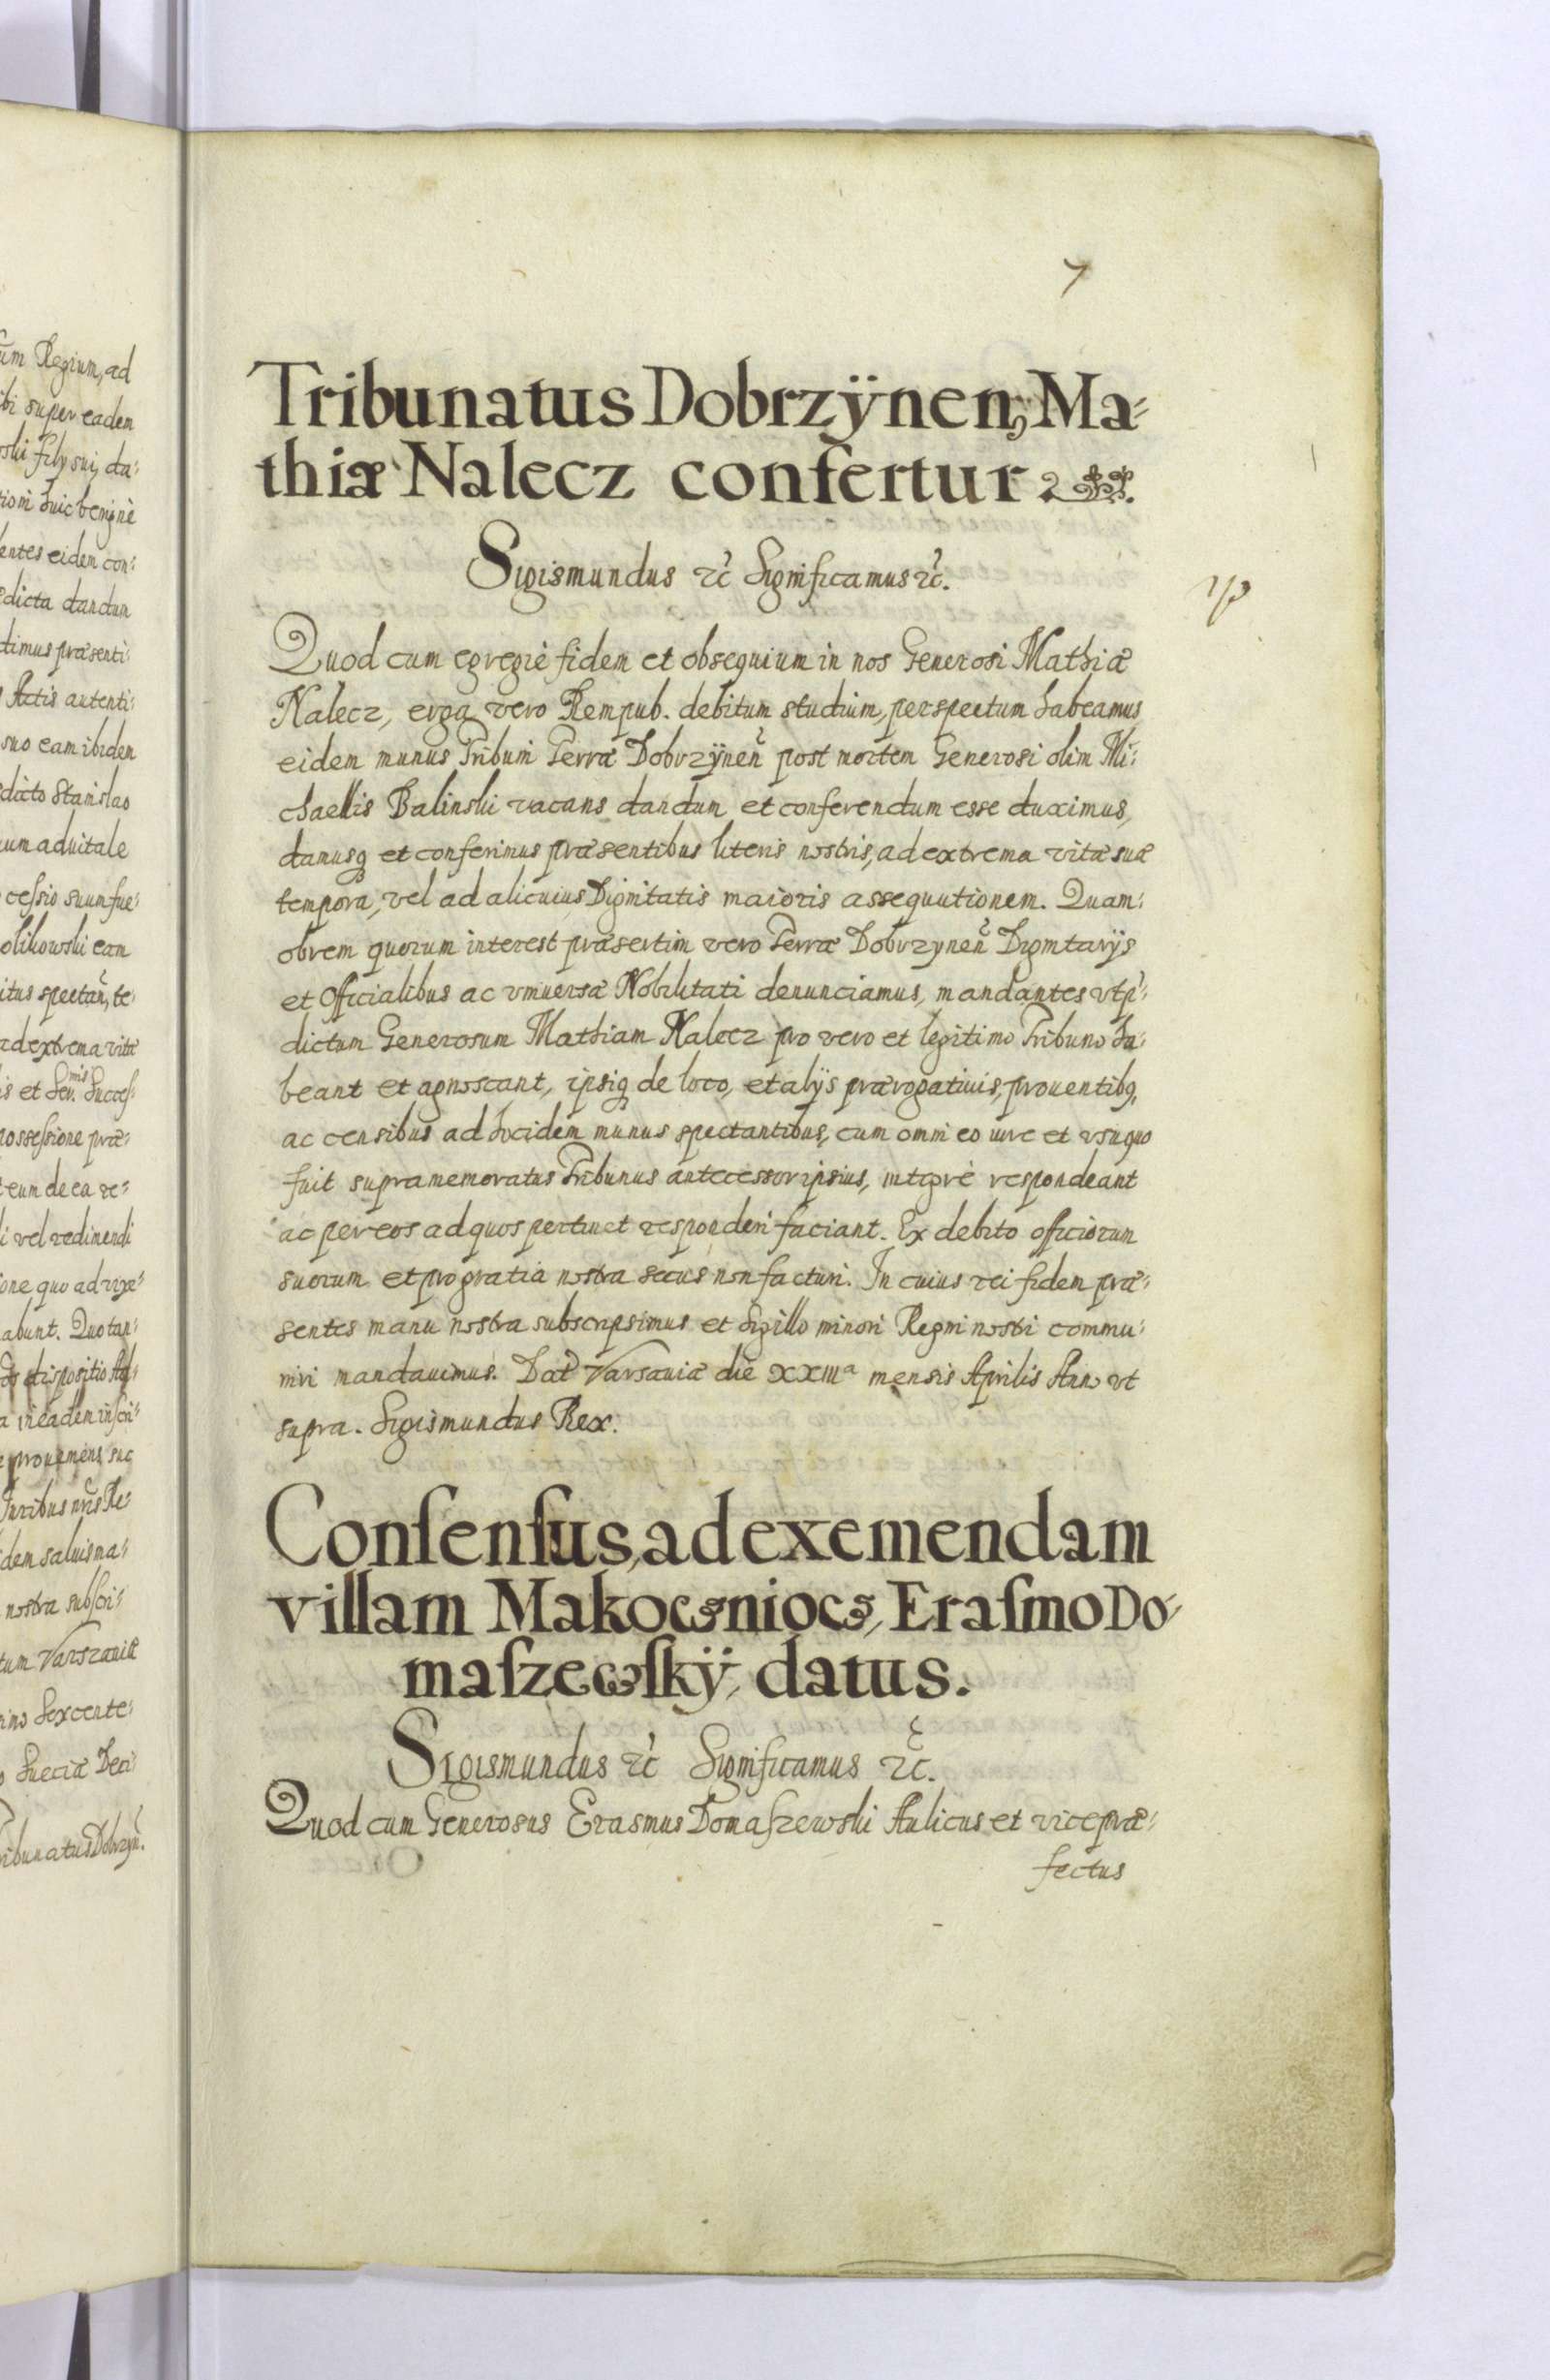 um Regium, ad
bi super eadem
ski filÿ sui, da-
tioni huic benignè
entes eidem con-
dicta dandum
timus præsenti-
Actis autenti-
suo eam ibidem
dicto Stanislao
um aduitale
cessio suum fue-
olikowski eam
itus spectan̄, te-
ad extrema vitæ
is et Ser.mis Success-
possessione præ-
eum de ea re-
i vel redimendi
one quo ad vixe-
abunt. Quotan-
dispositio
a in eadem inscri-
prouemens suc
Juribus nr̄is Re-
dem saluis ma-
nostra subscri-
tum Varszauiæ
nno Sexcente-
o Sueciæ Deci-
ribunatus Dobrzyn̄.
7
Tribunatus Dobrzÿnen, Ma-
thiæ Nalecz confertur
Sigismundus ꝛc̄ Significamus ꝛc̄.
Quod cum egregiè fidem et obsequium in nos Generosi Mathiæ
Nalecz, erga vero Rempub. debitum studium, perspectum habeamus
eidem munus Tribuni Terræ Dobrzÿnen̄ post mortem Generosi olim Mi-
chaelis Balinski vacans dandum et conferendum esse duximus,
damusq et conferimus præsentibus literis nostris, ad extrema vitæ suæ
tempora, vel ad alicuius Dignitatis maioris assequutionem. Quam-
obrem quorum interest præsertim vero Terræ Dobrzynen̄ Dignitarÿs
et Officialibus ac vniuersæ Nobilitati denunciamus, mandantes vt p̄-
dictum Generosum Mathiam Nalecz pro vero et legitimo Tribuno ha-
beant et agnoscant, ipsiq de loco, et alÿs prærogatiuis, prouentibq,
ac censibus ad hocidem munus spectantibus, cum omni eo iure et vsu quo
fuit supramemoratus Tribunus antecessor ipsius, integrè respondeant
ac per eos ad quos pertinet responderi faciant. Ex debito officiorum
suorum et pro gratia nostra secus non facturi. In cuius rei fidem præ-
sentes manu nostra subscripsimus et Sigillo minori Regni nostri commu-
niri mandauimus. Dat̄ Varsauiæ die XXIIIa mensis Aprilis Anno vt
supra. Sigismundus Rex.
Consensus, ad exemendam
villam Makowniow, Erasmo Do-
maszewskÿ, datus.
Sigismundus ꝛc̄ Significamus ꝛc̄.
Quod cum Generosus Erasmus Domaszewski Aulicus et vicepræ-
fectus